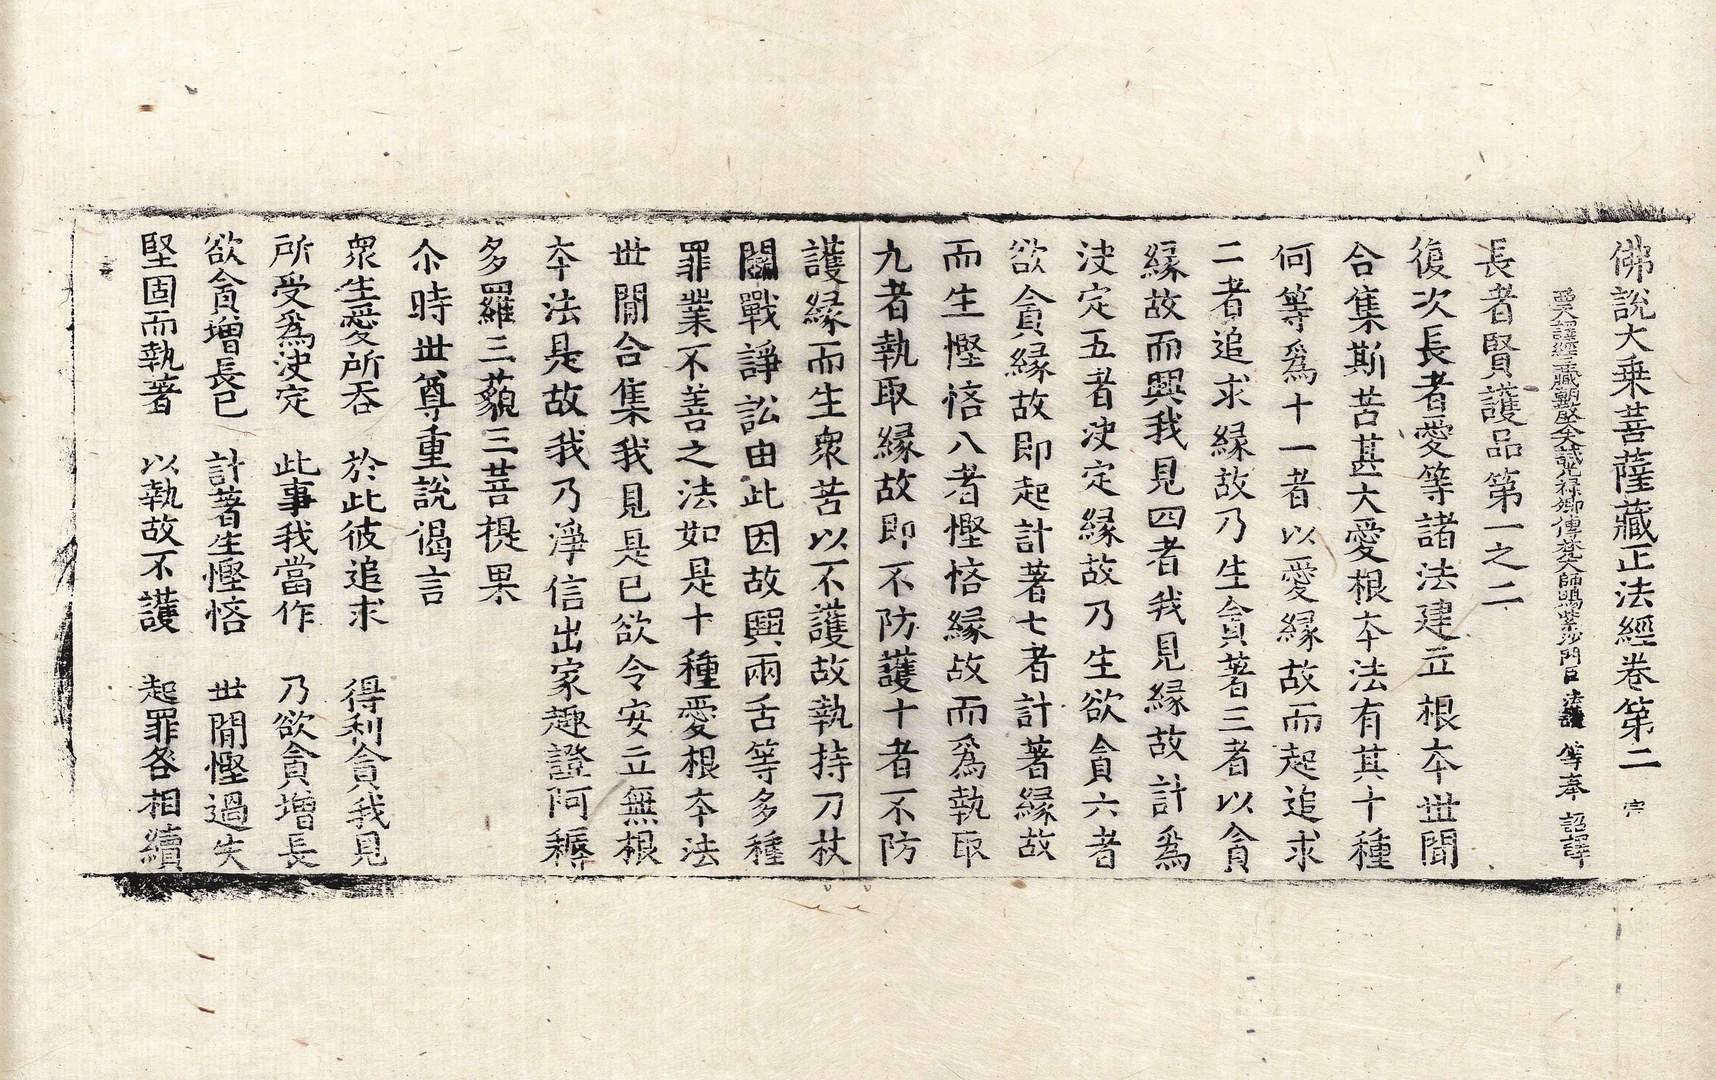 佛說大乗菩薩藏正法經卷第二 㝎
譯經三藏朝散大夫試光祿卿傳梵大師賜紫沙門臣法護 等奉 詔譯
長者賢護品第一之二
復次長者愛等諸法建立根夲世閒
合集斯苦甚大愛根夲法有其十種
何等爲十一者以愛縁故而起追求
二者追求縁故乃生貪著三者以貪
縁故而興我見四者我見縁故計爲
决定五者决定縁故乃生欲貪六者
欲貪縁故即起計著七者計著縁故
而生慳悋八者慳悋縁故而爲執取
九者執取縁故即不防護十者不防
護縁而生衆苦以不護故執持刀杖
鬪戰諍訟由此因故興兩舌等多種
罪業不善之法如是十種愛根夲法
世閒合集我見是已欲令安立無根
夲法是故我乃淨信出家趣證阿耨
多羅三藐三菩提果
尒時世尊重說偈言
衆生愛所吞 於此彼追求 得利貪我見
所受爲决定 此事我當作 乃欲貪增長
欲貪增長已 計著生慳悋 世閒慳過失
堅固而執著 以執故不護 起罪各相續